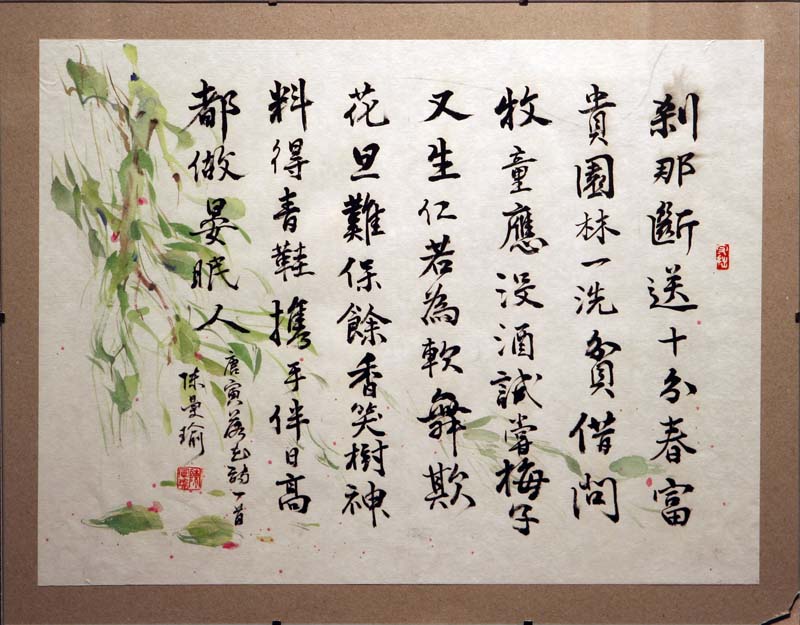 刹那斷送十分春富
貴園林一洗貧借問
牧童應沒酒試嘗梅子
又生仁若為軟舞欺
花旦難保餘香笑樹神
料得青鞋攜手伴日高
都做晏眠人
唐寅落花詩一首
陳曼瑜